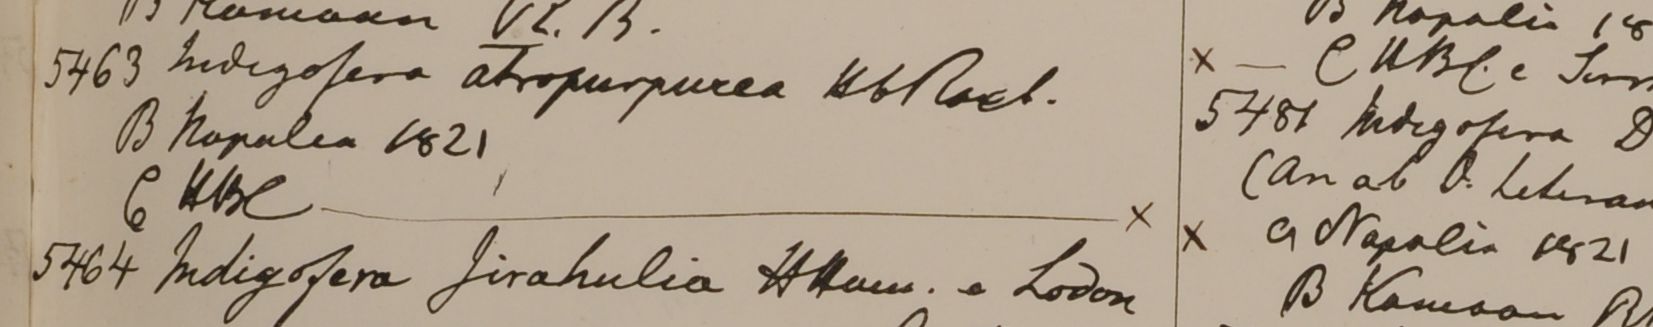 B Kamaon Rl. B.
5463 Indigofera atropurpurea Hb Roxb.
B Napalea 1821
C HBC x
5464 Indigofera Jirahulia HHam. e Lodon
B Napalia 18
x — C HBC. e
5481 Indigofera D
(an ab O.
x a Napalia 1821
B Kamaon